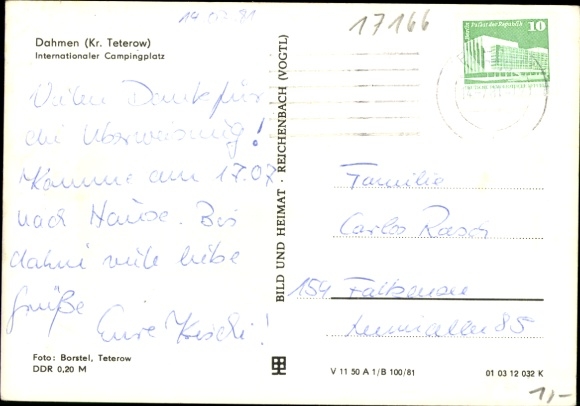 14.07.81
17166
Dahmen (Kr. Teterow)
Internationaler Campingplatz
Berlin Palast der Republik 10
Vielen Dank für
die Überweisung!
Komme am 17.07
nach Hause. Bis
dahin viele liebe
Grüße
Eure
BILD UND HEIMAT · REICHENBACH (VOGTL)
Familie
Carlos Rasch
154 Falkensee
Leninallee 85
Foto: Borstel, Teterow
DDR 0,20 M
V 11 50 A 1/B 100/81
01 03 12 032 K
1,-